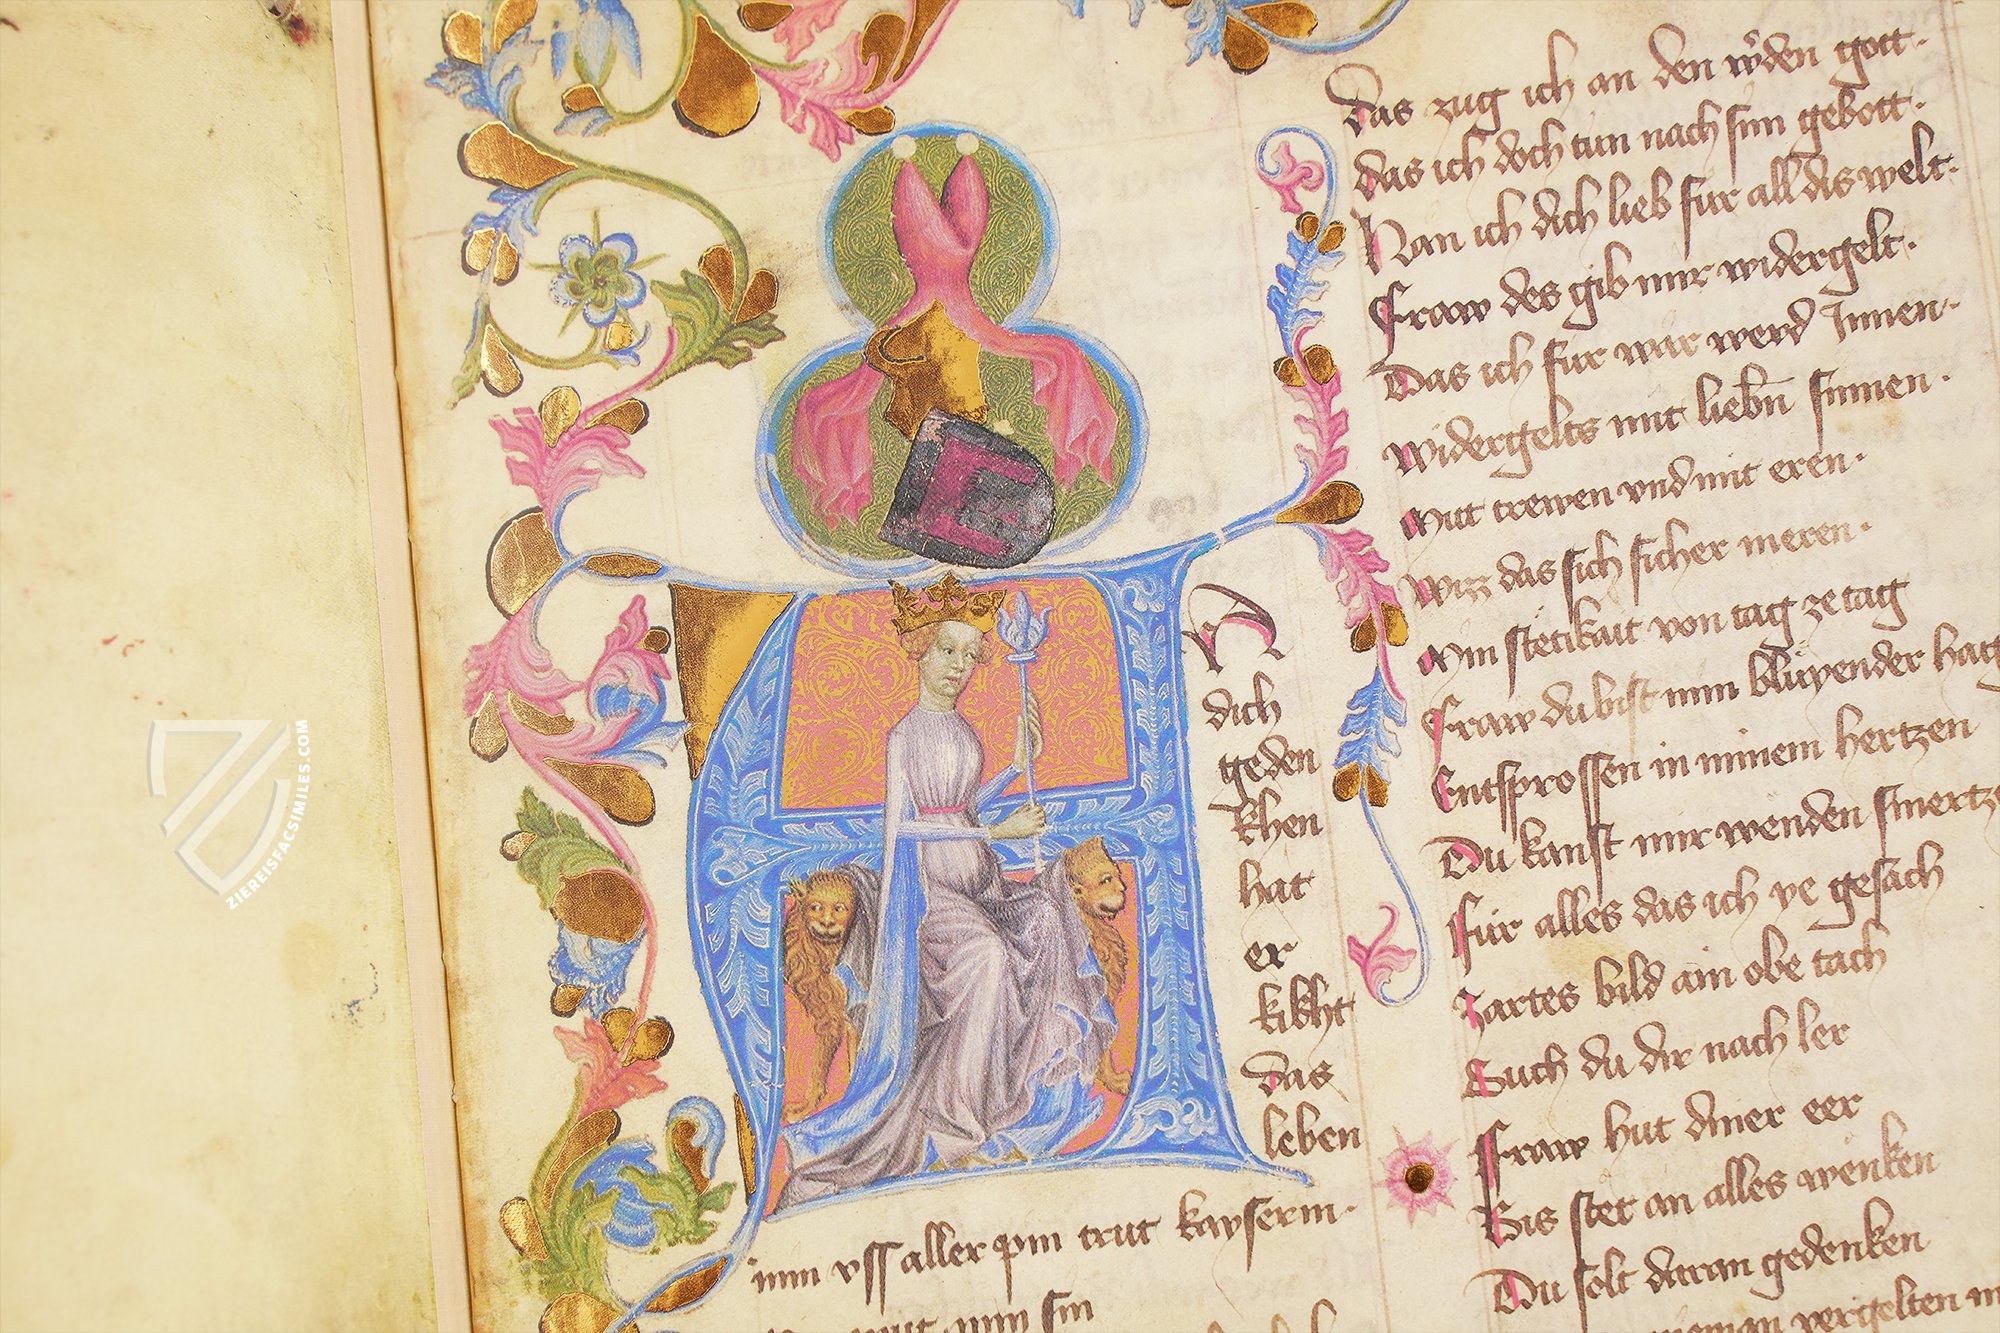 An
dich
geden
khen
hat
er
kikht
das
leben
mein vss aller pin trut kayserin·
min sin
Das zug ich an den werden gott·
das ich doch tun nach sim gebott·
Han ich dich lieb fur all dis welt·
Fraw des gib mir widergelt·
Das ich fur war werd Innen·
widergelts mit liebn sinnen·
Mit trewen vnd mit eren·
wizz das sich sicher meren·
Min stetikait von tag ze tag
Fraw du bist min bluyender hag
Entsprossen in minem hertzen
Du kanst mir wenden smertze
für alles das ich ye gesach
Zartes bild ain obe tach
Such du dir nach ler
Fraw hut diner eer
Bis stet an alles wenken
Du solt daran gedenken
nieman vergelten
ZIEREISFACSIMILES.COM